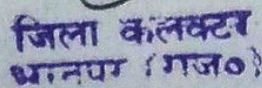 जिला कलक्टर
धानपर (राज०)